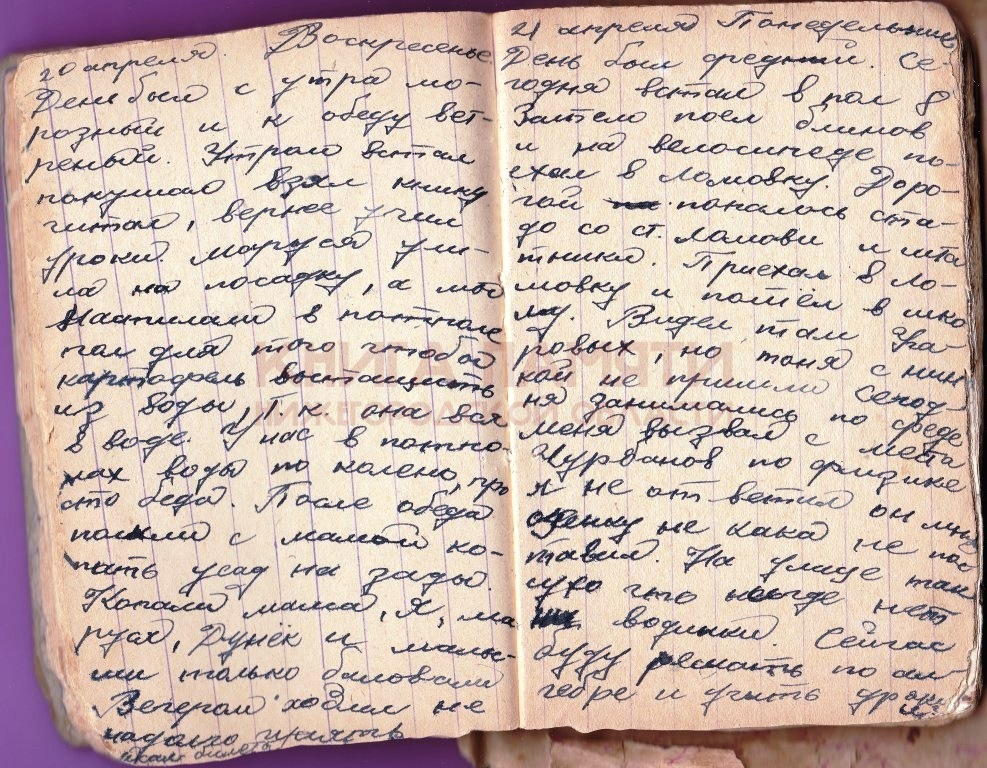 20 апреля. Воскресенье.
День был с утра мо-
розный и к обеду вет-
реный. Утром встал
покушал взял книгу
читал, вернее учил
уроки. Маруся уш-
ла на посадку, а мы
в
пол для того чтобы
картофель вытащить
из воды, т.к. она вся
в воде. У нас в потпо-
лах воды по колено, про
сто беда. После обеда
пошли с мамой ко-
пать усад на зады.
Копали мама, я, Ма
руся, Дунёк и малы-
ши только баловали
Вечером ходил не
надолго гулять
билета
21 апреля Понедельник
День был средний. Се-
годня встал в пол 8
Затело поел блинов
и на велосипеде по-
ехал в Ломовку. Доро-
гой попалось ста-
до со ст. Ломовки и
Приехал в Ло-
мовку и пошёл в шко
лу. Видел там
но тоня с нин
кой не пришли Сегод-
ня занимались по
меня вызвал с места
Курбанов по физике
я не от ветил он мне
оценку не кака не пос
тавил. На улице так
сухо что негде нет
водинки. Сейчас
буду решать по ал
гебре и учить уроки
КНИГА ПАМЯТИ
НИЖЕГОРОДСКОЙ ОБЛАСТИ